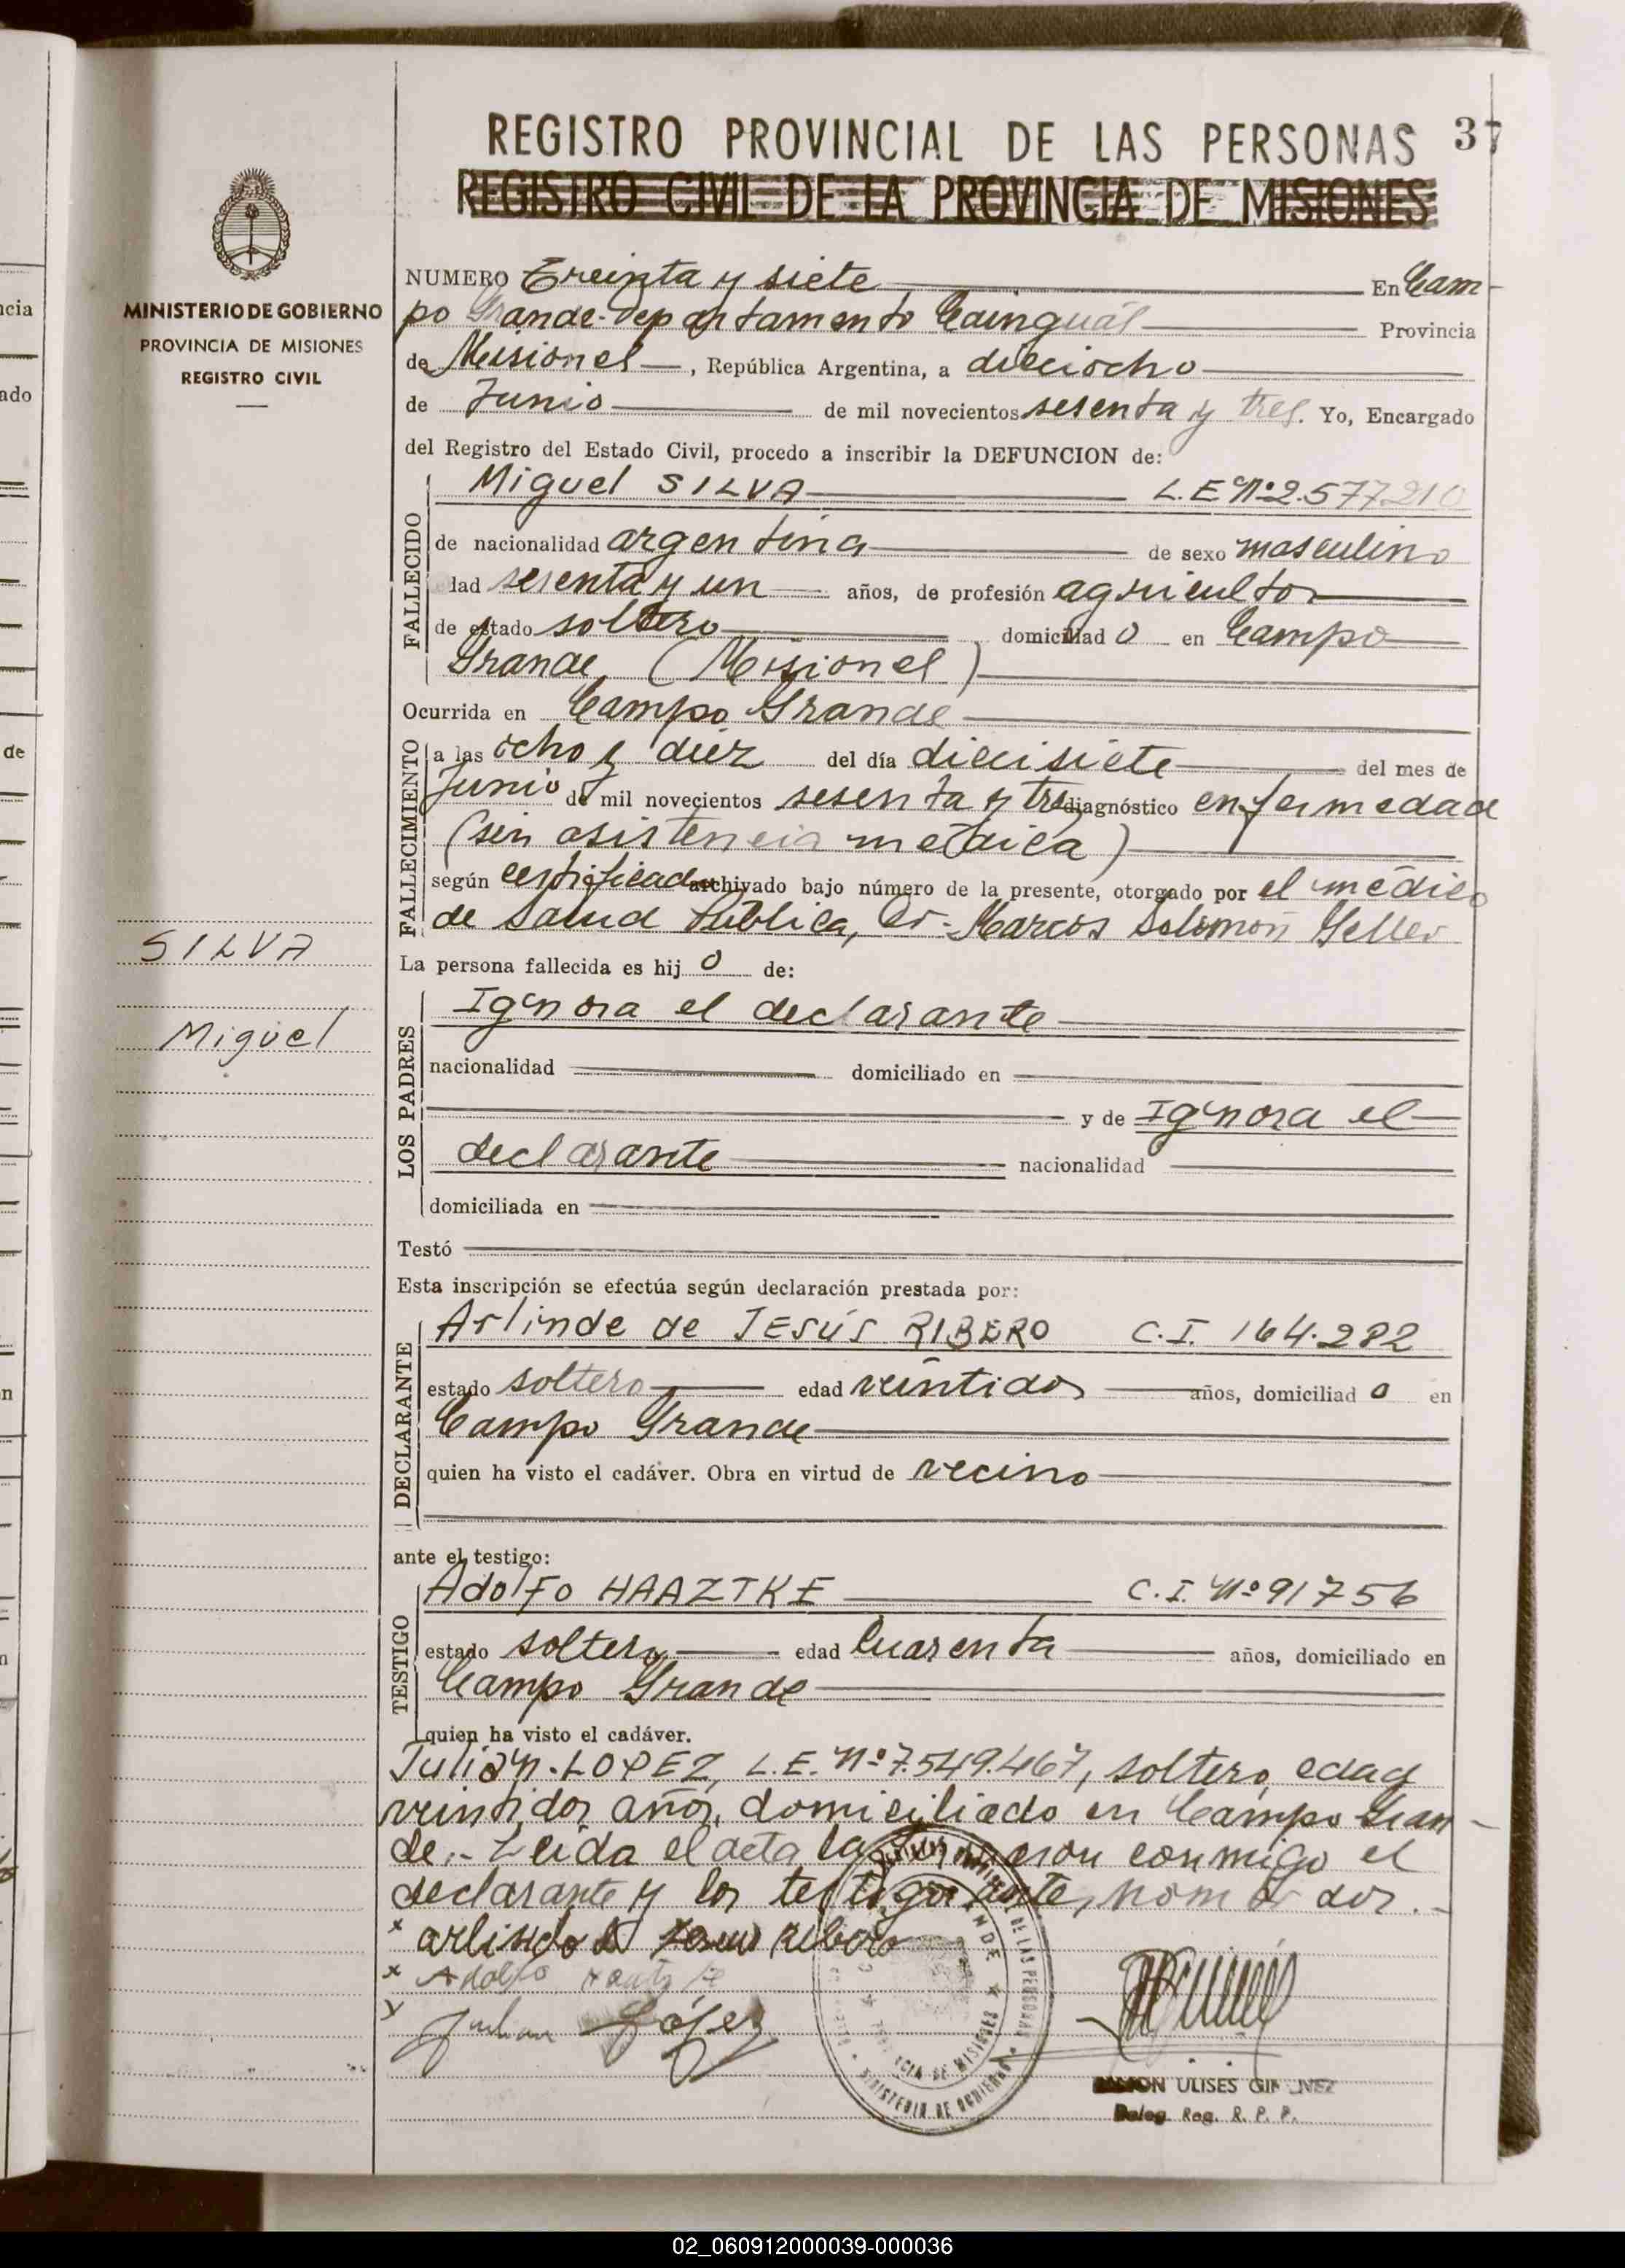 REGISTRO PROVINCIAL DE LAS PERSONAS 37
REGISTRO CIVIL DE LA PROVINCIA DE MISIONES
MINISTERIO DE GOBIERNO
PROVINCIA DE MISIONES
REGISTRO CIVIL
NUMERO Treinta y siete En Cam
po Grande-Departamento Cainguás Provincia
de Misiones, República Argentina, a dieciocho
de Junio de mil novecientos sesenta y tres. Yo, Encargado
del Registro del Estado Civil, procedo a inscribir la DEFUNCION de:
FALLECIDO
Miguel SILVA L.E Nº 2.577210
de nacionalidad argentina de sexo masculino
dad sesenta y un años, de profesión agricultor
de estado soltero domiciliad o en Campo
Grande, (Misiones)
Ocurrida en Campo Grande
FALLECIMIENTO
a las ocho y diez del día diecisiete del mes de
Junio de mil novecientos sesenta y tres diagnóstico enfermedad
(sin asistencia médica)
según certificado archivado bajo número de la presente, otorgado por el médico
de Salud Pública, Dr. Marcos Solomón Geller
SILVA
Miguel
La persona fallecida es hij o de:
LOS PADRES
Ignora el declarante
nacionalidad domiciliado en
y de Ignora el
declarante nacionalidad
domiciliada en
Testó
Esta inscripción se efectúa según declaración prestada por:
DECLARANTE
Arlinde de JESÚS RIBERO C.I. 164.282
estado soltero edad veintidos años, domiciliad o en
Campo Grande
quien ha visto el cadáver. Obra en virtud de vecino
ante el testigo:
TESTIGO
Adolfo HAAZTKE C.I. Nº 91756
estado soltero edad Cuarenta años, domiciliado en
Campo Grande
quien ha visto el cadáver.
Julián LOPEZ, L.E. Nº 7.549.467, soltero, edad
veintidos años, domiciliado en Campo Gran-
de.- Leida el acta la firmaron conmigo el
declarante y los testigos ante, nombrados.-
x arlindo d Jesus Ribero
x Adolfo
y Julian López
MINISTERIO DE GOBIERNO
DE LAS PERSONAS
DE MISIONES
RAMON ULISES GIMENEZ
Deleg. Reg. R. P. P.
02_060912000039-000036